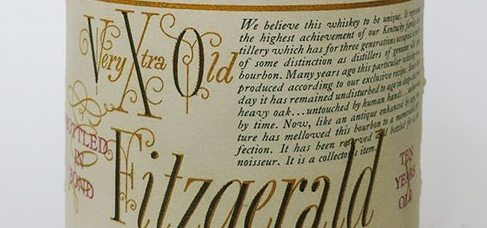 Very Xtra Old
We believe this whiskey to be unique. It
the highest achievement of our Kentucky
tillery which has for three generations
of some distinction as distillers of genuine
bourbon. Many years ago this particular
produced according to our exclusive
day it has remained undisturbed to age in
heavy oak...untouched by human
by time. Now, like an antique enhanced by
ture has mellowed this bourbon to a
fection. It has been reserved
noisseur. It is a collector's item.
BOTTLED
IN
BOND
Fitzgerald
TEN
YEARS
OLD